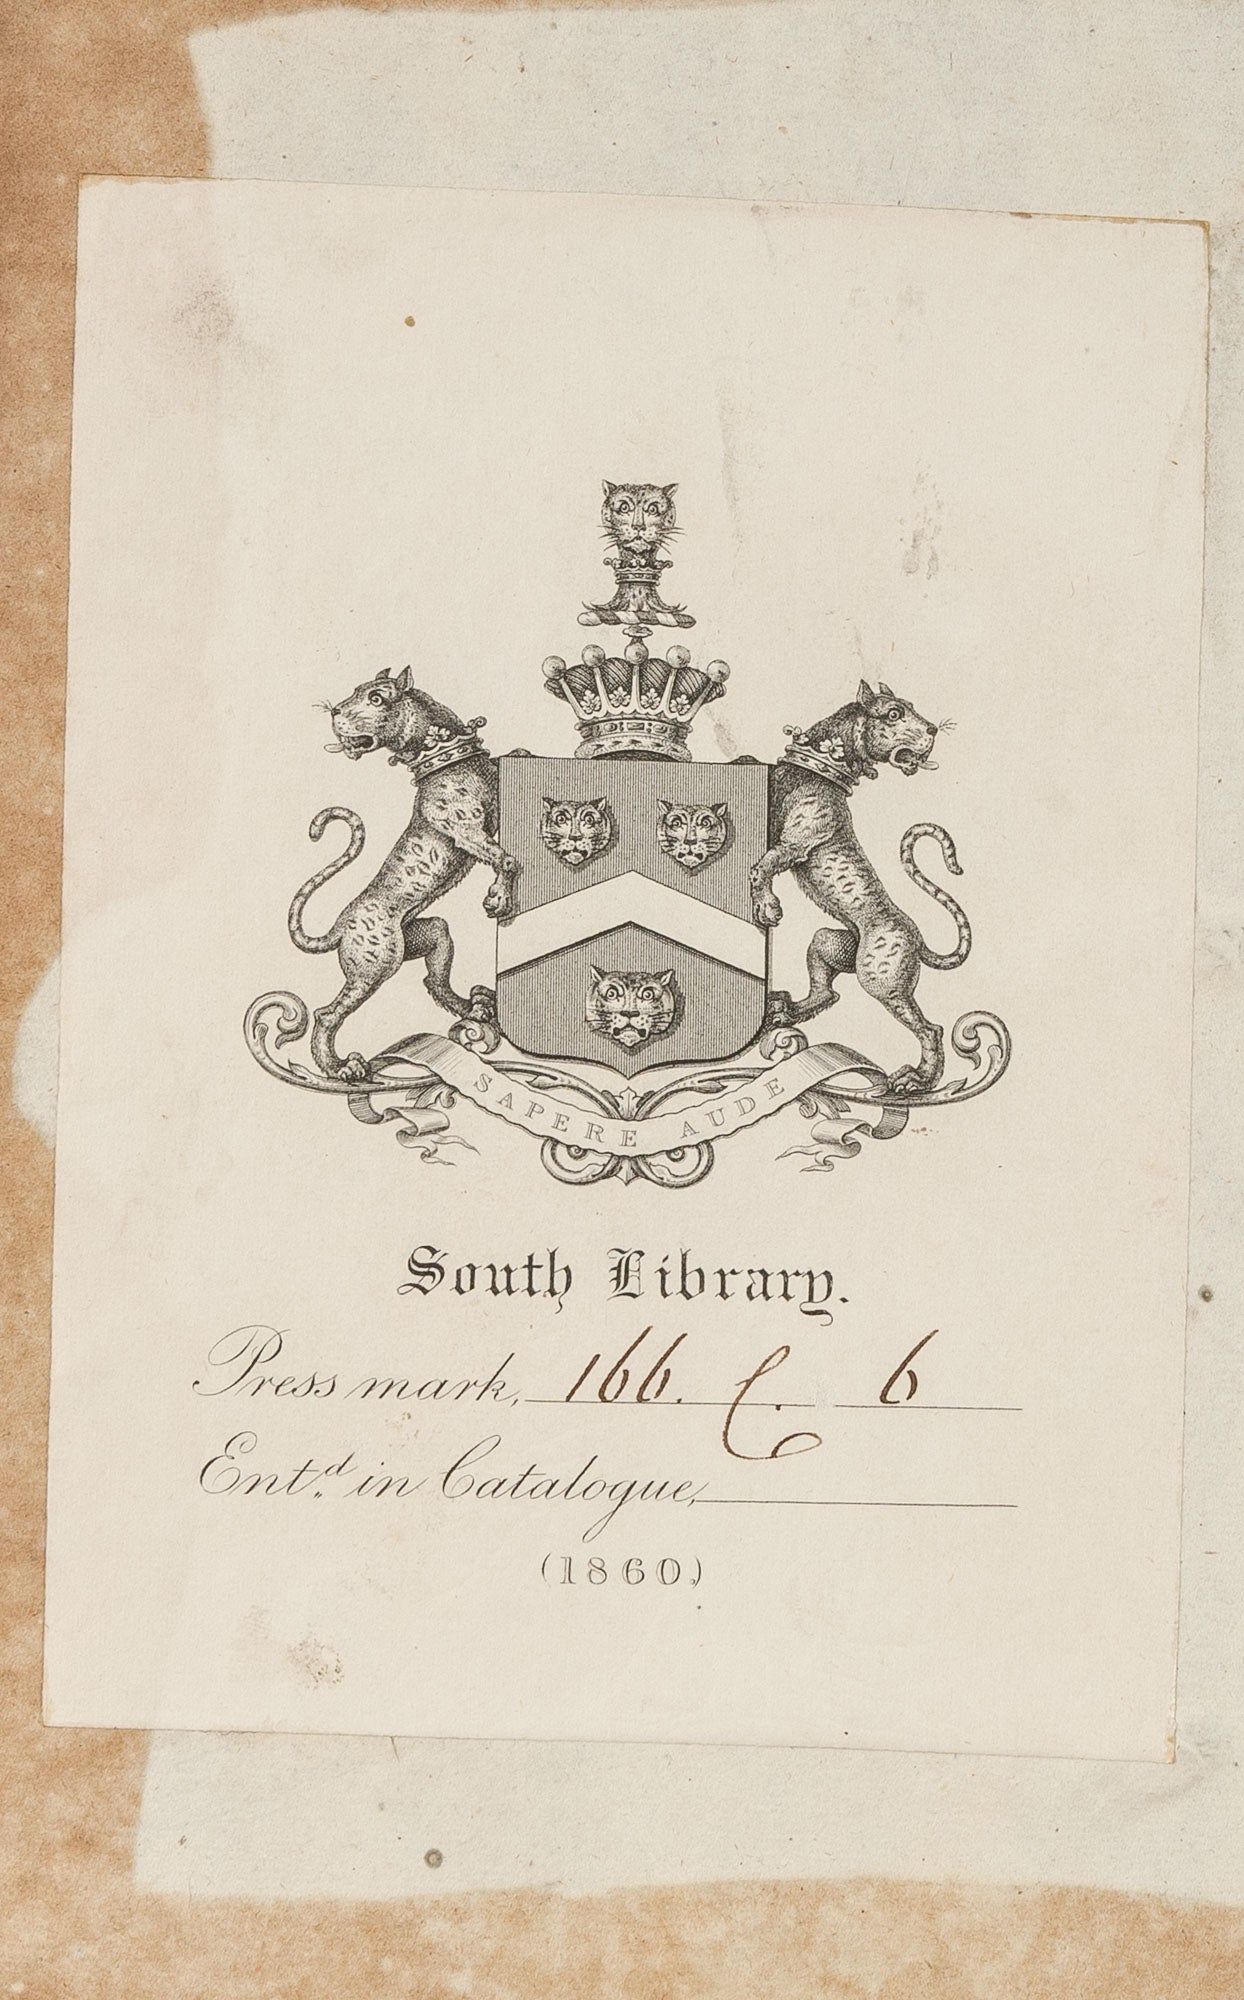 SAPERE AUDE
South Library.
Press mark, 166. C. 6
Ent.d in Catalogue,
(1860)